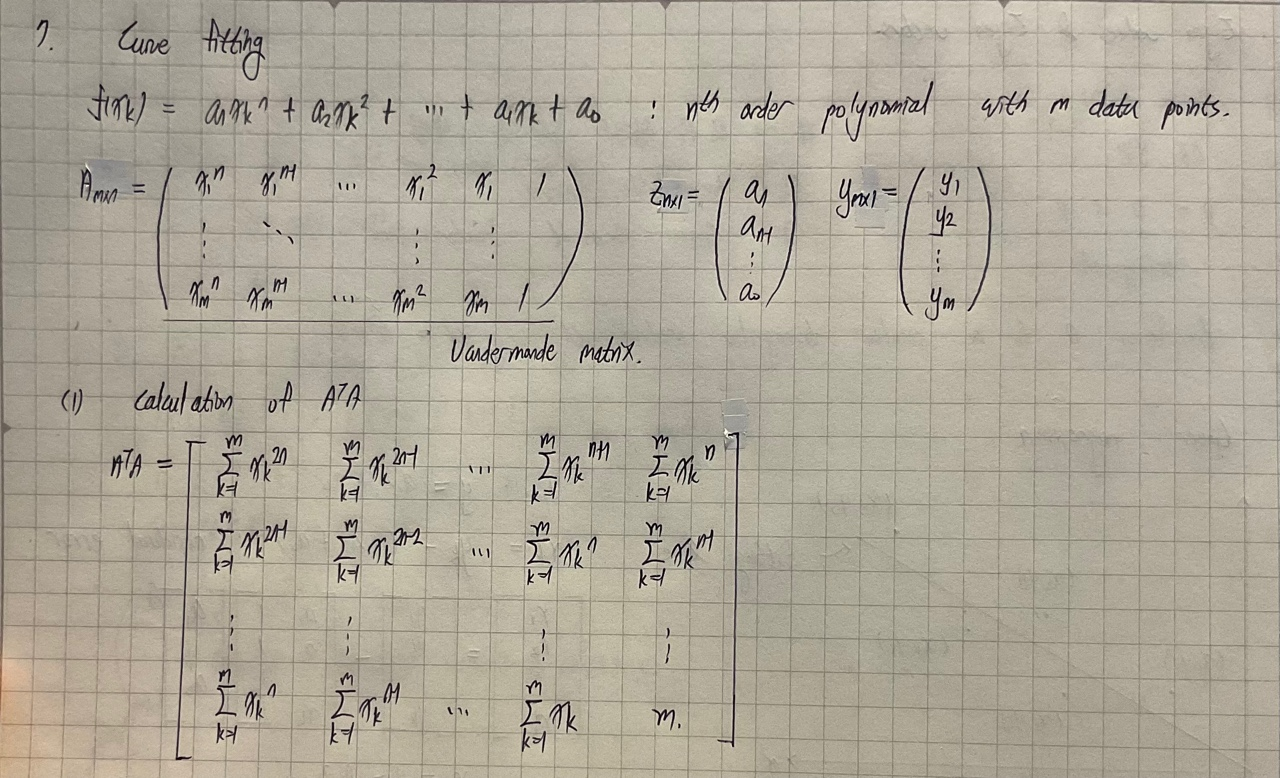 7. Curve fitting
f(xk) = anxk^n + a2xk^2 + ... + a1xk + a0 : nth order polynomial with m data points.
Amxn = ( x1^n x1^n-1 ... x1^2 x1 1 ; ⋮ ⋱ ⋮ ⋮ ; xm^n xm^n-1 ... xm^2 xm 1 ) Znx1 = ( an ; an-1 ; ⋮ ; a0 ) ymx1 = ( y1 ; y2 ; ⋮ ; ym )
Vandermonde matrix.
(1) Calculation of A^TA
A^TA = [ Σ_{k=1}^{m} xk^2n Σ_{k=1}^{m} xk^2n-1 ... Σ_{k=1}^{m} xk^n+1 Σ_{k=1}^{m} xk^n
Σ_{k=1}^{m} xk^2n-1 Σ_{k=1}^{m} xk^2n-2 ... Σ_{k=1}^{m} xk^n Σ_{k=1}^{m} xk^n-1
⋮ ⋮ ⋮ ⋮
Σ_{k=1}^{m} xk^n Σ_{k=1}^{m} xk^n-1 ... Σ_{k=1}^{m} xk m. ]